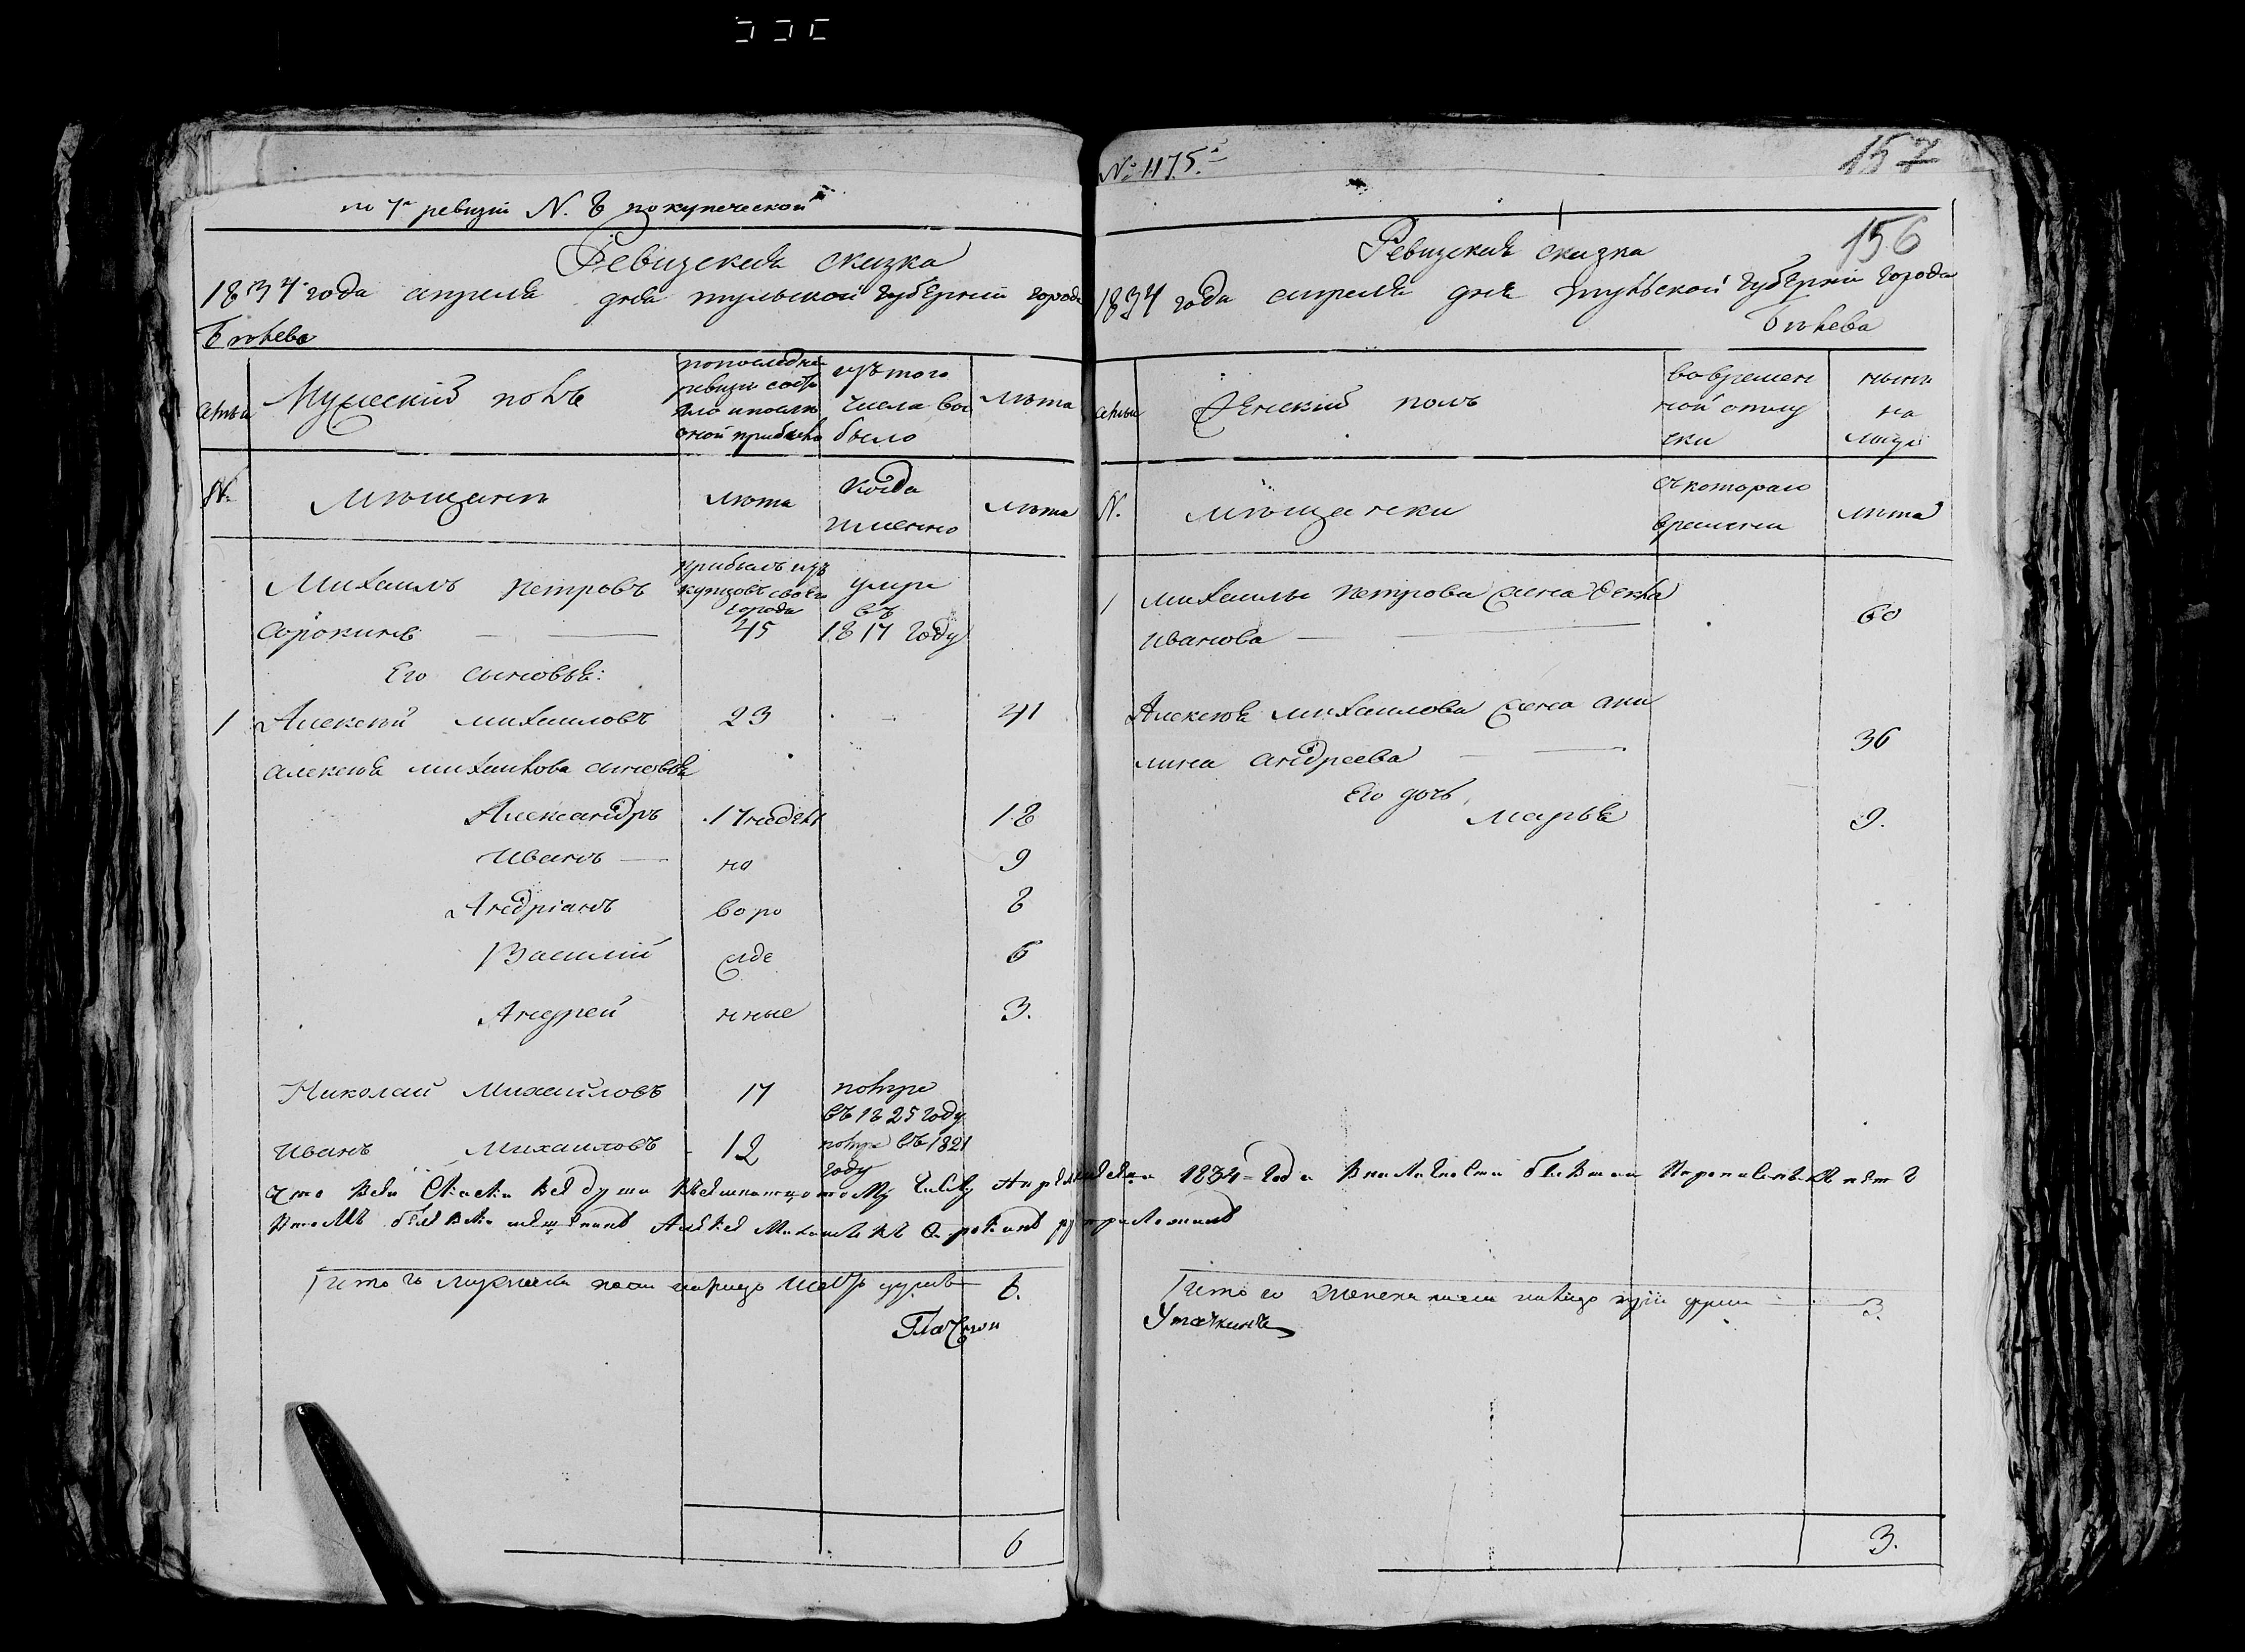 по 7й ревизіи N. 8 по купеческой
Ревизская сказка
1834 года апреля дня тульской губерніи города
Бѣлева
семьи
Мужеский полъ
по последней ревизіи состояло и после оной прибыло
изъ того числа выбыло
лѣта
N.
Мѣщане
лѣта
когда именно
лѣта
Михаилъ петровъ прибылъ изъ купцовъ своего города умре въ
Сорокинъ 45 1817 году
Его сыновья:
1 Алексей михаиловъ 23 41
алексея михаилова сыновья
Александръ 17 недель 18
Иванъ но 9
Андріанъ воро 8
Василий жде 6
Андрей нные 3.
Николай Михайловъ 17 помре въ 1825 году
Иванъ Михаиловъ 12 помре въ 1821 году
Итого мужеска пола налицо шесть душъ 6.
6
№ 1175.
157
156
Ревизская сказка
1834 года апреля дня тульской губерніи города
Бѣлева
семьи
Женский полъ
во временной отлучки
ныне на лицо
N.
мѣщанки
съ котораго времени
лѣта
1 михаилы петрова жена
иванова 60
Алексея михаилова жена аки
лина андреева 36
Его дочь
марья 9.
Итого женска пола налицо три души 3.
3.